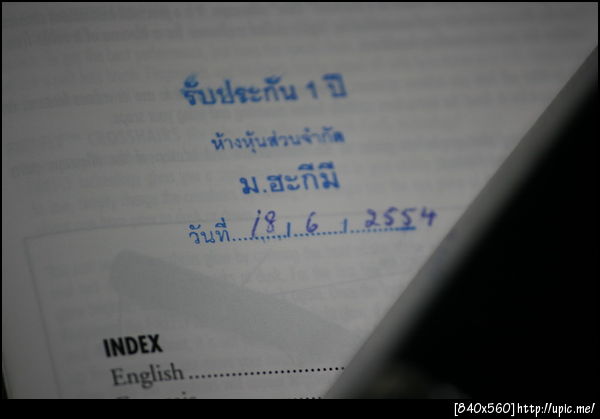 รับประกัน 1 ปี
ห้างหุ้นส่วนจำกัด
ม.ฮะกีมี
วันที่ 18 / 6 / 2554
INDEX
English
[840x560]http://upic.me/